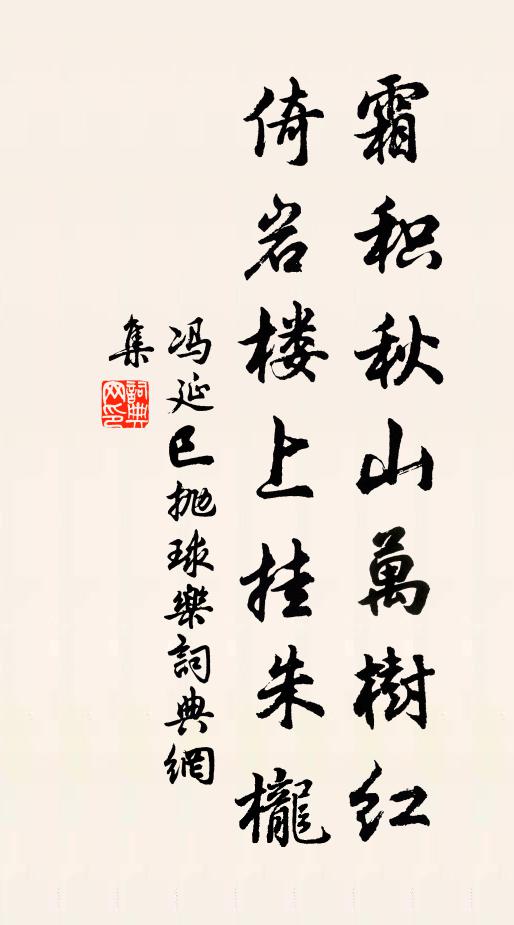 霜积秋山萬樹红
倚岩楼上挂朱櫳
冯延巳抛球樂詞典網
集
詞典网印